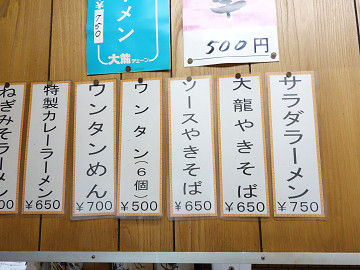 ーメン
¥650
大龍チェーン
500円
サラダラーメン
¥750
大龍やきそば
¥650
ソースやきそば
¥650
ウンタン(6個)
¥500
ウンタンめん
¥700
特製カレーラーメン
¥650
ねぎみそラーメン
00